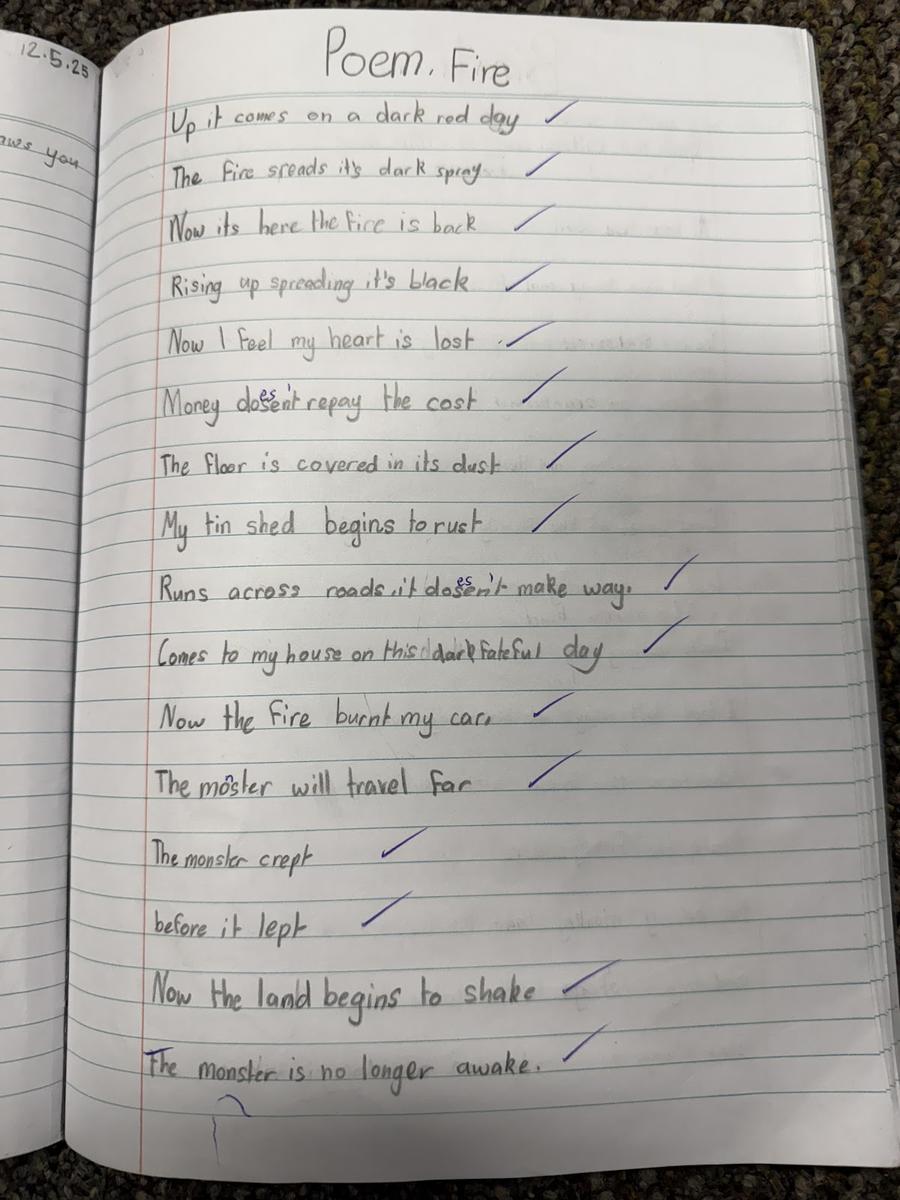 12.5.25
you
Poem. Fire
Up it comes on a dark red day
The Fire sreads it's dark spray
Now its here the fire is back
Rising up spreading it's black
Now I feel my heart is lost
Money doesen't repay the cost
The floor is covered in its dust
My tin shed begins to rust
Runs across roads it doesen't make way.
Comes to my house on this dark fateful day
Now the Fire burnt my car.
The monster will travel far
The monster crept
before it lept
Now the land begins to shake
The monster is no longer awake.